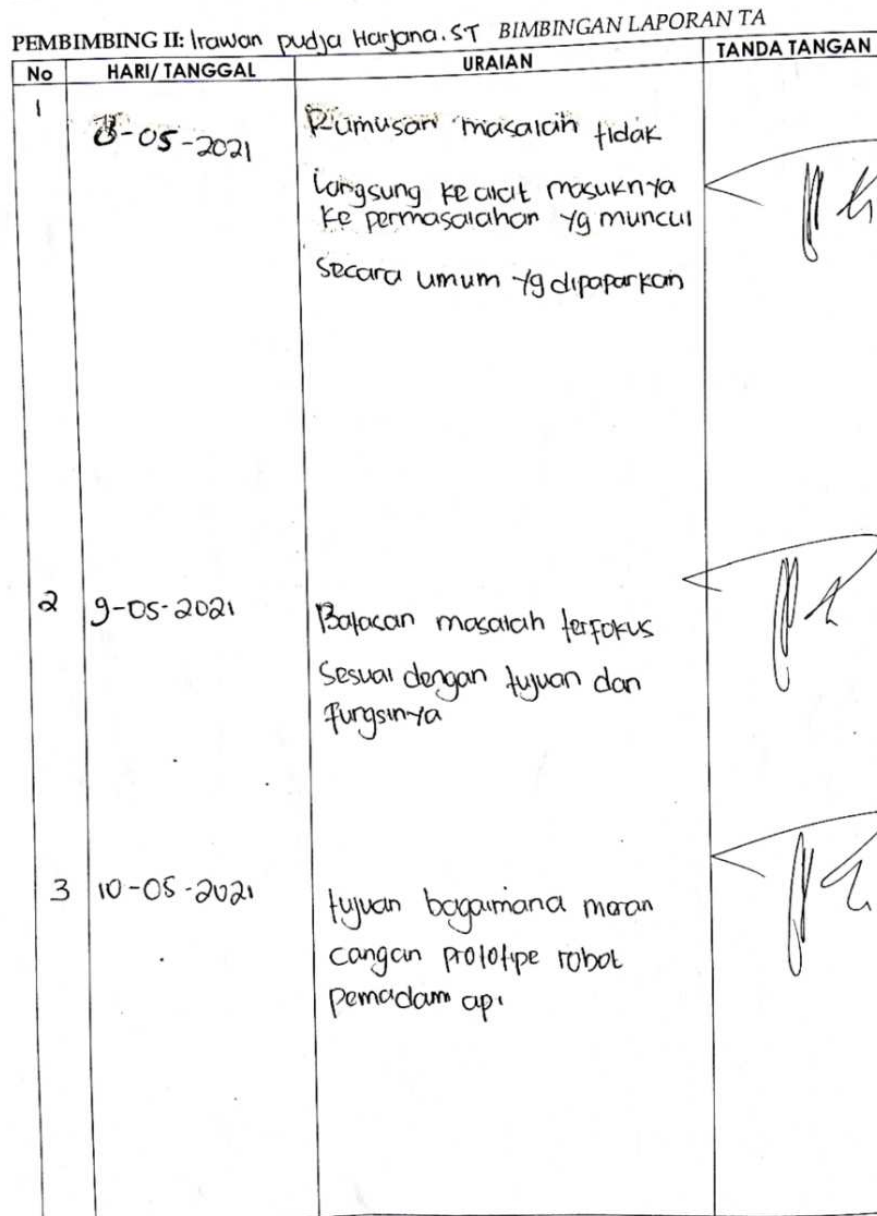 PEMBIMBING II: Irawan pudja Harjana. ST BIMBINGAN LAPORAN TA
No HARI/TANGGAL URAIAN TANDA TANGAN
1 -05-2021 Rumusan masalah tidak
langsung ke alat masuknya
ke permasalahan yg muncul
Secara umum yg dipaparkan
2 9-05-2021 Batasan masalah terfokus
Sesuai dengan tujuan dan
fungsinya
3 10-05-2021 tujuan bagaimana meran
cangan prototipe robot
pemadam api